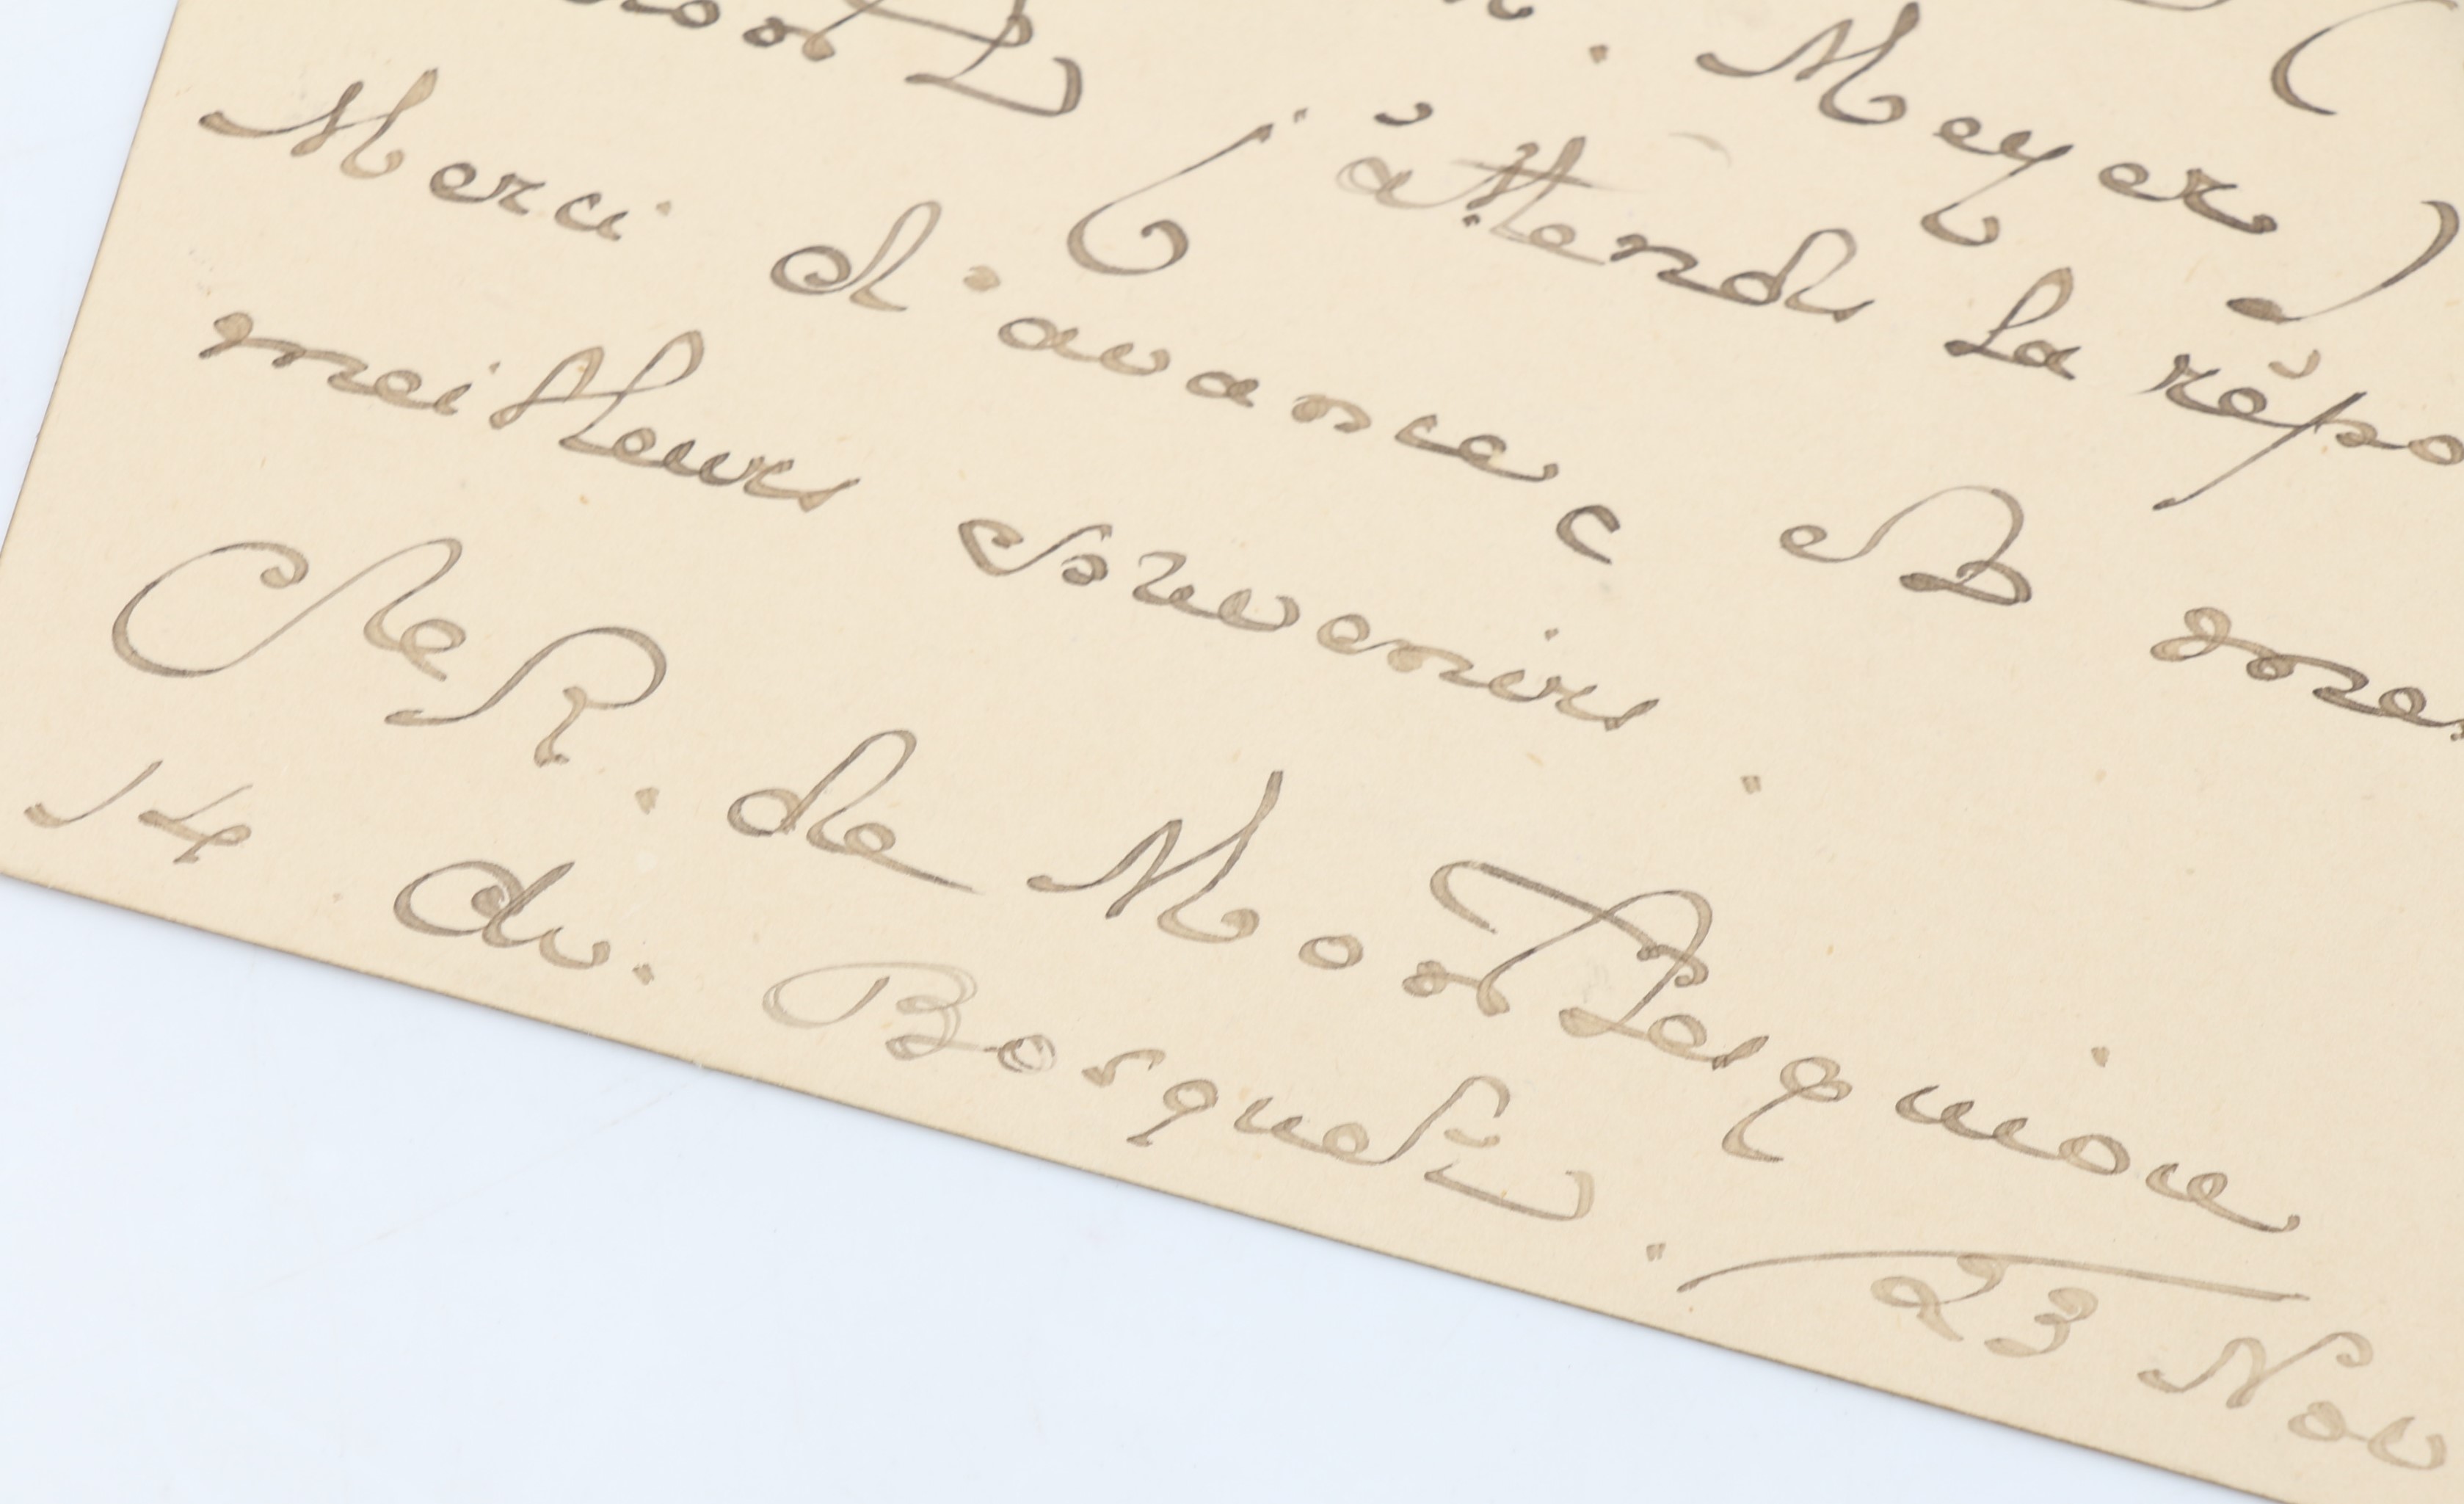 Meyer)
j'attends la répo
Merci d'avance, et mes
meilleurs souvenirs.
Cte R. de Montesquiou
14 Av. Bosquet. 23 Nov